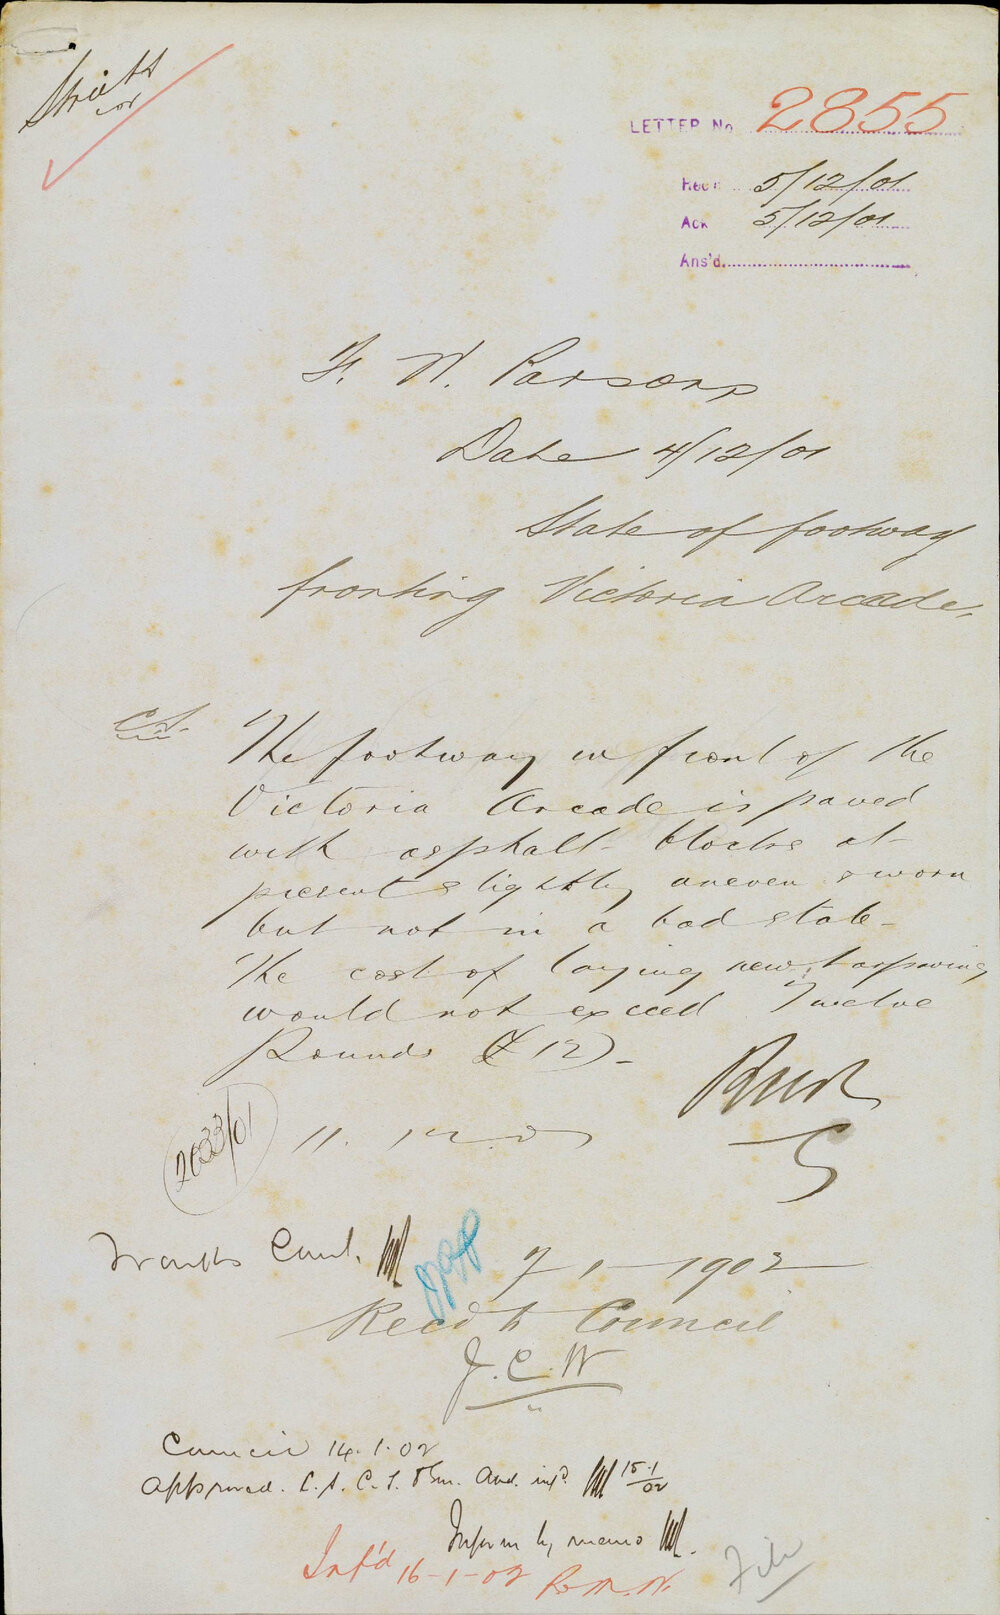 Streets
LETTER No 2855
Rec'd 5/12/01
Ack 5/12/01
Ans'd
F. W. Parsons
Date 4/12/01
State of footway
fronting Victoria Arcade.
C.S.
The footway in front of the
Victoria Arcade is paved
with asphalt blocks at
present slightly uneven & worn
but not in a bad state
The cost of laying new tarpaving
would not exceed Twelve
Pounds (£12).
11.12.01
2633/01
Works Com.
7-1-1902
Recd to Council
J.C.W
Council 14.1.02
approved. C.S.
15.1
02
Inform by memo
Inf'd 16-1-02
File